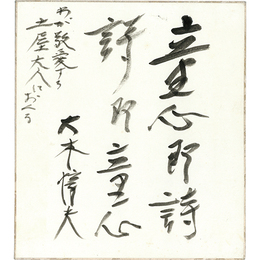 童心即詩
詩即童心
大木惇夫
わが敬愛する
土屋大人におくる